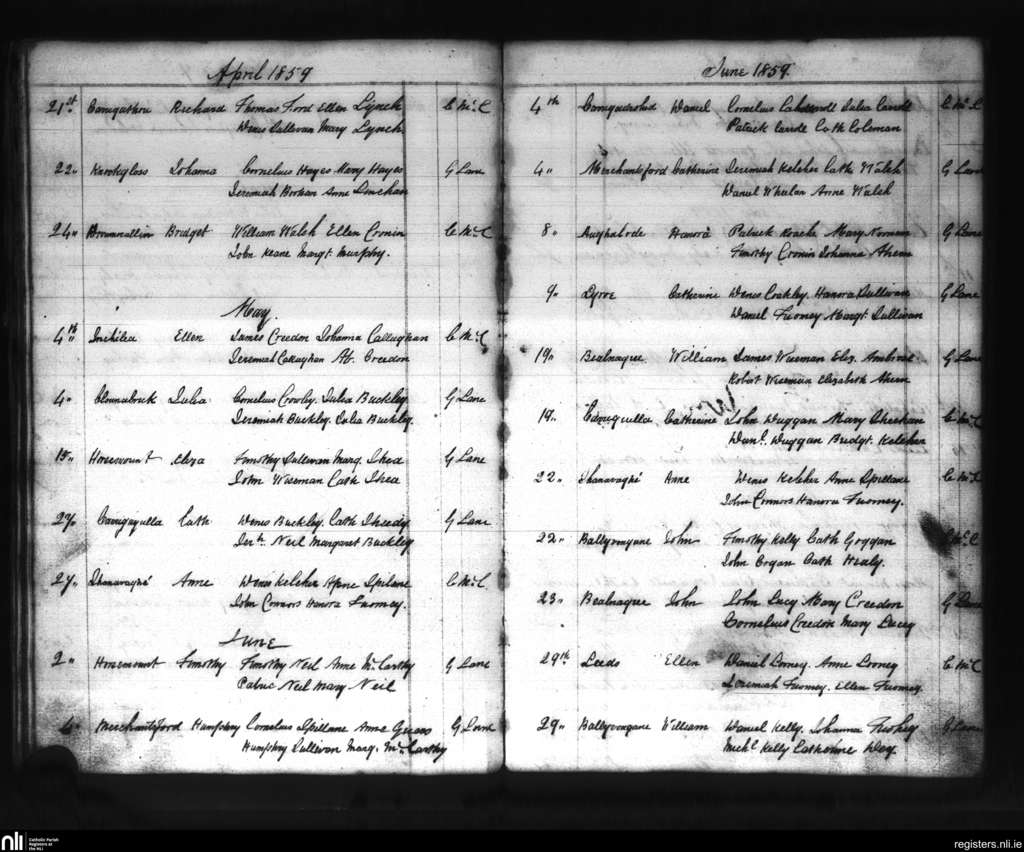 April 1859
21st Carriguthru Richard Thomas Ford Ellen Lynch C McC
Denis Sullivan Mary Lynch
22" Knockglass Johanna Cornelius Hayes Mary Hayes G Lane
Jeremiah Anne Linehan
24" Bridget William Walsh Ellen Cronin C McC
John Keane Margt. Murphy.
May
4th Inchilea Ellen James Creedon Johanna Callaghan C McC
Jeremiah Callaghan Creedon
4" Julia Cornelius Crowley. Julia Buckley G Lane
Jeremiah Buckley. Julia Buckley.
15" Horsemount Eliza Timothy Sullivan Marg. Shea G Lane
John Wiseman Cath Shea
27" Carrigagulla Cath Denis Buckley. Cath Sheedy G Lane
Jerh. Neil Margaret Buckley
27" Shanavagha Anne Denis Keleher Anne Spilane C McC.
John Connors Hanora Twomey.
June
2" Horsemount Timothy Timothy Neil Anne McCarthy G Lane
Patric Neil Mary Neil
4" Merchantsford Humphry Cornelius Spillane Anne G Lane
Humphry Sullivan Marg. McCarthy
June 1859
4th Daniel Cornelius Julia Carroll C McC
Patrick Cath Coleman
4" Merchantsford Catherine Jeremiah Keleher Cath Walsh G Lane
Daniel Whelan Anne Walsh
8" Hanora Patrick Roache Mary G Lane
Timothy Cronin Johanna Ahern
9" Lyrre Catherine Denis Coakley. Hanora Sullivan G Lane
Daniel Twomey Margt. Sullivan
19" Bealnagree William James Wiseman Eliz. G Lane
Robert Wiseman Elizabeth Ahern
19" Carrigagulla Catherine John Duggan Mary Sheehan C McC
Danl. Duggan Bridgt. Keleher
22" Shanavagha Anne Denis Keleher Anne Spillane C McC
John Connors Hanora Twomey.
22" Ballyvongane John Timothy Kelly Cath Goggan C McC
John Crgan Cath Healy.
23" Bealnagree John John Lucy Mary Creedon G Lane
Cornelius Creedon Mary Lucey
29th Leeds Ellen Daniel Looney. Anne Looney C McC
Jeremiah Twomey. Ellen Twomey.
29" Ballyvongane William Daniel Kelly. Johanna G Lane
Michl Kelly Catherine Day
nli
Catholic Parish
Registers at
the NLI
registers.nli.ie